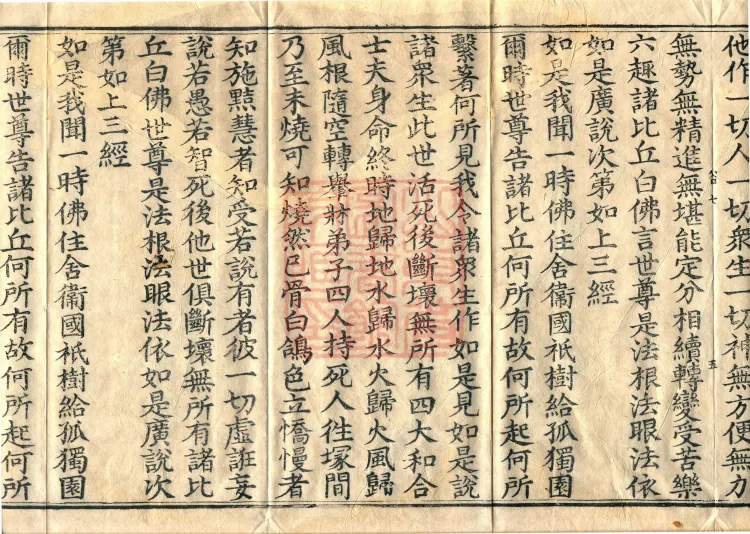 他作一切人一切衆生一切神無方便無力
無勢無精進無堪能定分相續轉變受苦樂
七
五
六趣諸比丘白佛言世尊是法根法眼法依
如是廣說次第如上三經
如是我聞一時佛住舍衛國祇樹給孤獨園
爾時世尊告諸比丘何所有故何所起何所
繫著何所見我令諸衆生作如是見如是說
諸衆生此世活死後斷壞無所有四大和合
士夫身命終時地歸地水歸水火歸火風歸
風根隨空轉轝牀弟子四人持死人往塚間
乃至未燒可知燒然已骨白鴿色立憍慢者
知施黠慧者知受若說有者彼一切虛誑妄
說若愚若智死後他世俱斷壞無所有諸比
丘白佛世尊是法根法眼法依如是廣說次
第如上三經
如是我聞一時佛住舍衛國祇樹給孤獨園
爾時世尊告諸比丘何所有故何所起何所